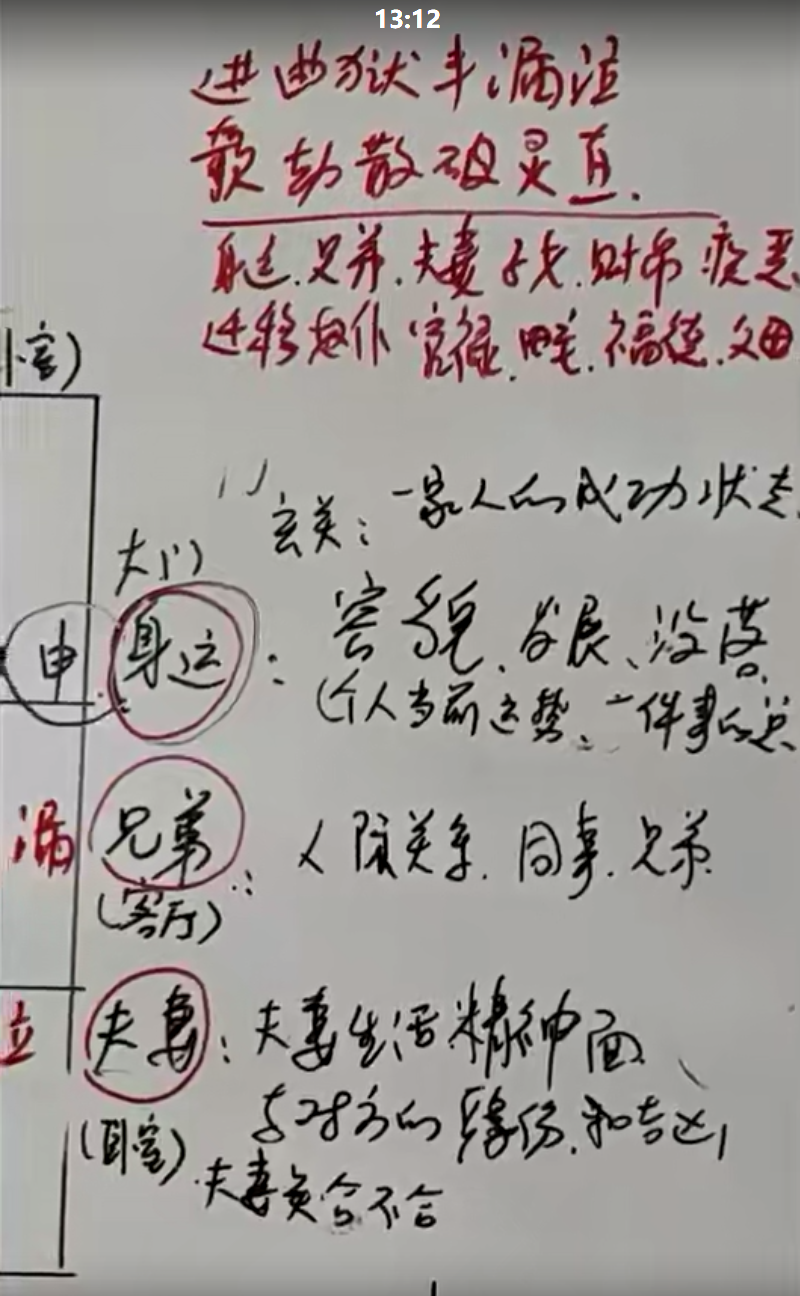 13:12
进曲狱丰漏泣
颡劫散破灵直.
身运.兄弟.夫妻 子女.财帛 疾恶
迁移 奴仆 官禄.田宅.福德.父母
卧室)
1)
玄关: 一家人的成功状态
大门
申 身运: 容貌、发展、没落
(个人当前运势、一件事的总
漏 兄弟: 人际关系.同事.兄弟
(客厅)
泣 夫妻: 夫妻生活精神面、
与对方的缘份.和
(卧室) 夫妻 合不合